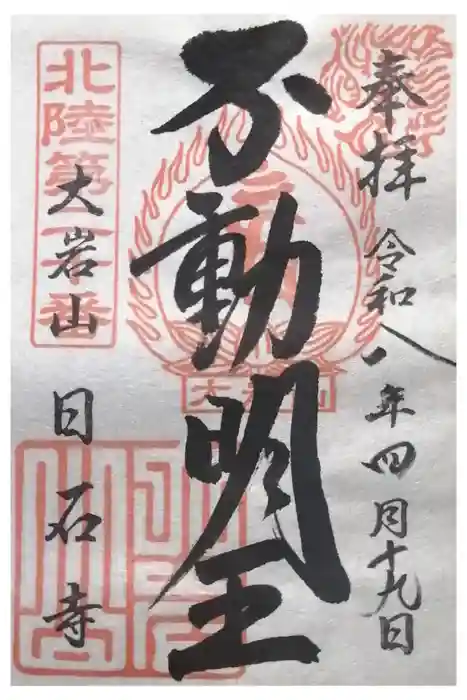 奉拝
令和八年四月十九日
不動明王
北陸第二十番
大岩山
日石寺